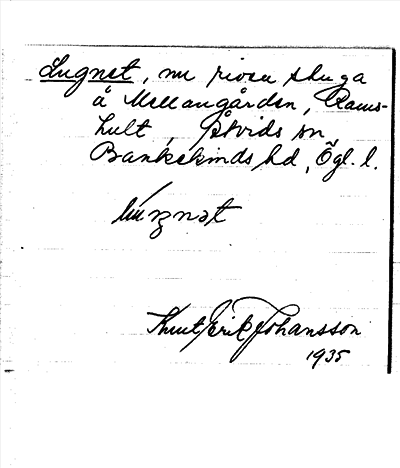 Lugnet, nu riven stuga
å Mellangården, Rams-
hult, Åtvids sn
Bankekinds hd, Ögl. l.
Knut Erik Johansson
1935